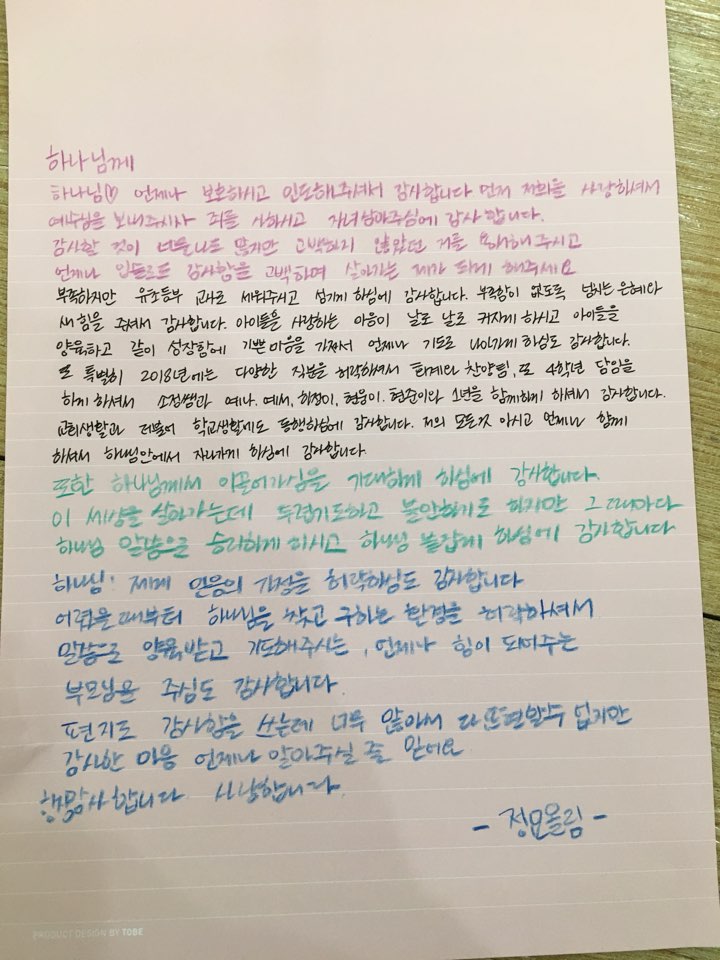 하나님께
하나님♡ 언제나 보호하시고 인도해주셔서 감사합니다 먼저 저희를 사랑하셔서
예수님을 보내주시사 죄를 사하시고 자녀삼아주심에 감사합니다.
감사할 것이 너무나도 많지만 고백하지 않았던 저를 용서해주시고
언제나 입술로도 감사함을 고백하며 살아가는 제가 되게 해주세요
부족하지만 유초등부 교사로 세워주시고 섬기게 하심에 감사합니다. 부족함이 없도록 넘치는 은혜와
새 힘을 주셔서 감사합니다. 아이들을 사랑하는 마음이 날로 날로 커지게 하시고 아이들을
양육하고 같이 성장함에 기쁜 마음을 가져서 언제나 기도로 나아가게 하심도 감사합니다.
또 특별히 2018년에는 다양한 직분을 허락하셔서 회계와 찬양팀, 또 4학년 담임을
하게 하셔서 소정쌤과 예나, 예서, 희정이, 형웅이, 현준이와 1년을 함께하게 하셔서 감사합니다.
교회생활과 더불어 학교생활에도 동행하심에 감사합니다. 저의 모든것 아시고 언제나 함께
하셔서 하나님안에서 자라가게 하심에 감사합니다.
또한 하나님께서 이끌어가심을 기대하게 하심에 감사합니다.
이 세상을 살아가는데 두렵기도하고 불안하기도 하지만 그때마다
하나님 말씀으로 승리하게 하시고 하나님 붙잡게 하심에 감사합니다
하나님! 제게 믿음의 가정을 허락하심도 감사합니다
어렸을때부터 하나님을 찾고 구하는 환경을 허락하셔서
말씀으로 양육받고 기도해주시는, 언제나 힘이 되어주는
부모님을 주심도 감사합니다.
편지로 감사함을 쓰는데 너무 많아서 다 표현할수 없지만
감사한 마음 언제나 알아주실 줄 믿어요
감사합니다 사랑합니다.
- 정묘올림 -
PRODUCT DESIGN BY TOBE